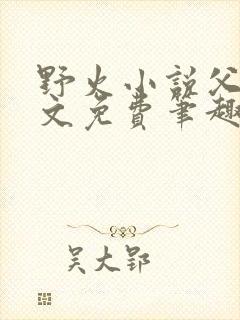 野火小说父
文免费笔趣
吴大郢